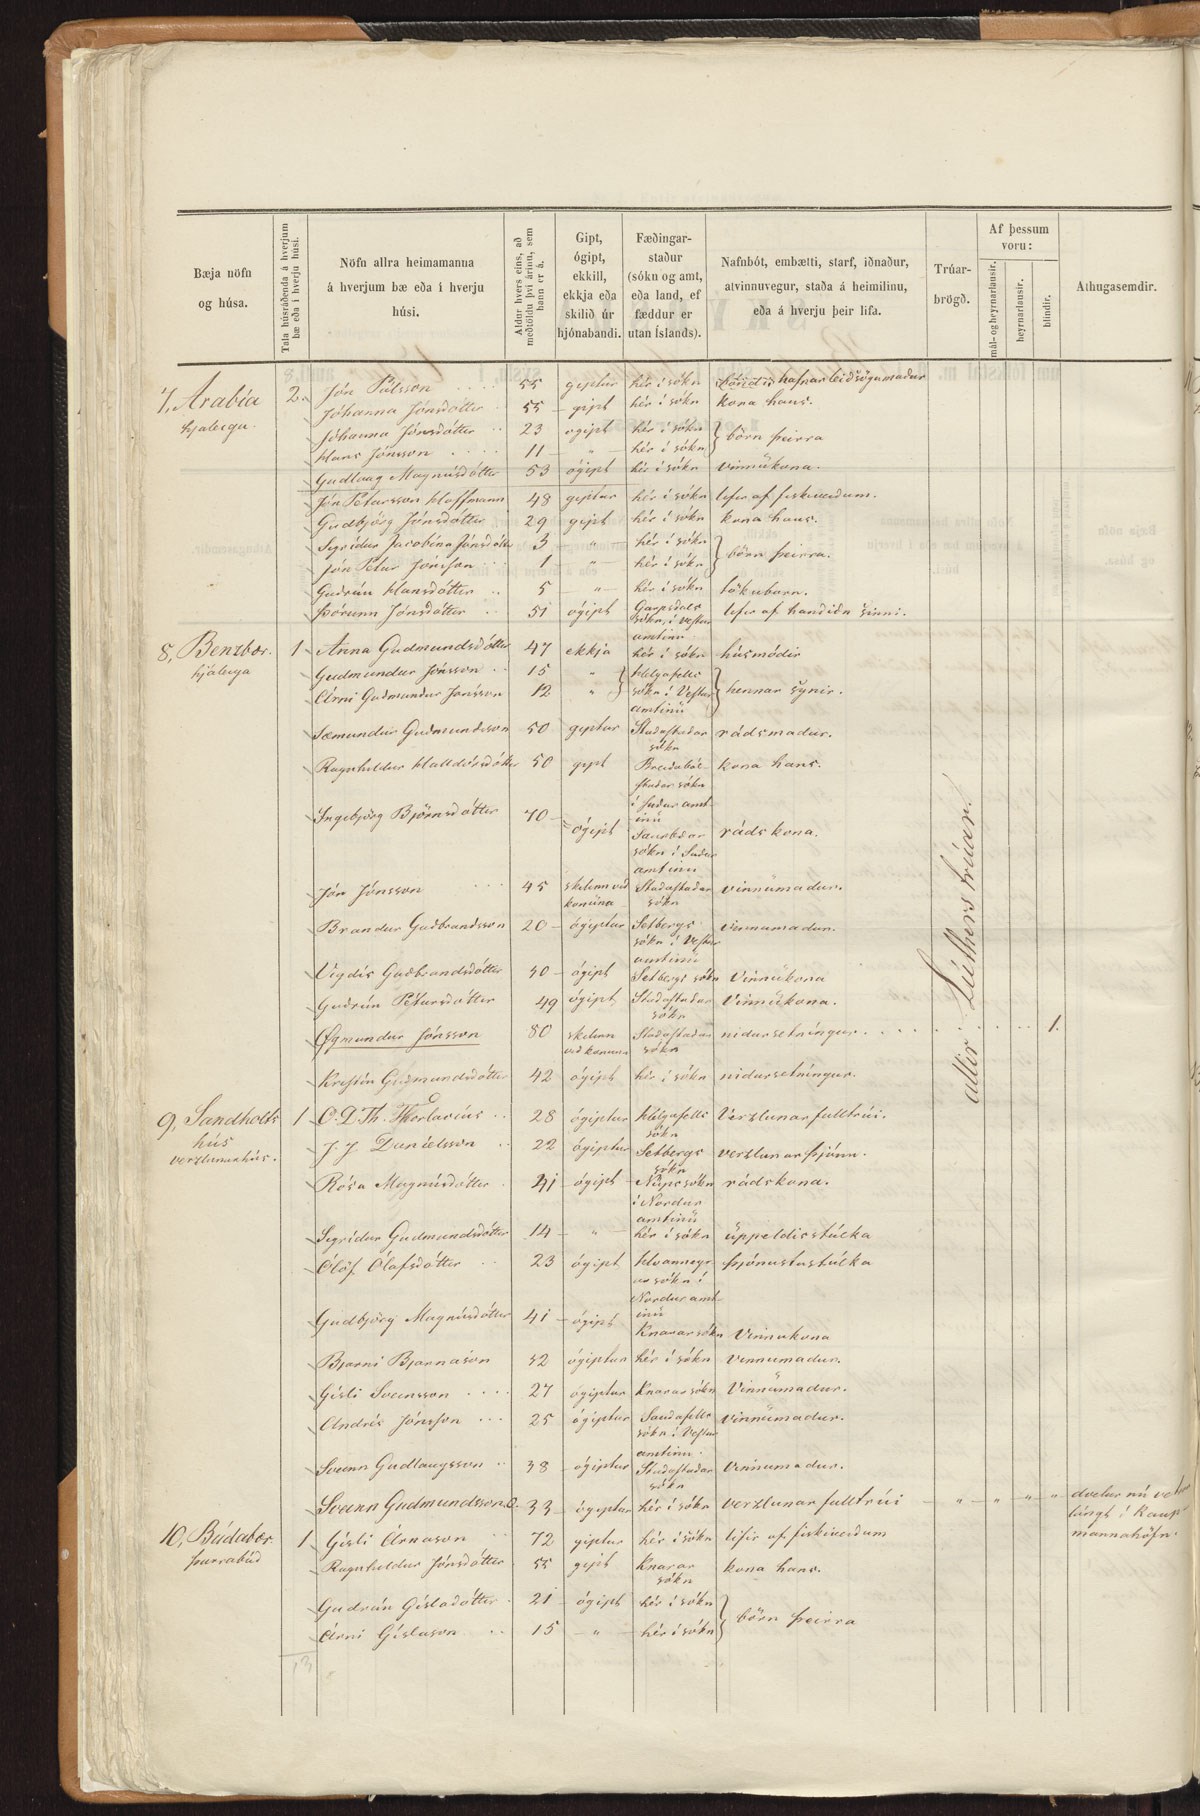 Bæja nöfn og húsa.
Tala húsráðenda á hverjum bæ eða í hverju húsi.
Nöfn allra heimamanna á hverjum bæ eða í hverju húsi.
Aldur hvers eins, að meðtöldu því árinu, sem hann er á.
Gipt, ógipt, ekkill, ekkja eða skilið úr hjónabandi.
Fæðingar-staður (sókn og amt, eða land, ef fæddur er utan Íslands).
Nafnbót, embætti, starf, iðnaður, atvinnuvegur, staða á heimilinu, eða á hverju þeir lifa.
Trúar-brögð.
Af þessum voru:
mál- og heyrnarlausir.
heyrnarlausir.
blindir.
Athugasemdir.
7, Arabia hjáleiga. 2. Jón Pálsson 55 giptur hér í sókn hafnarleiðsögumaður
Jóhanna Jónsdótter 55 gipt hér í sókn kona hans.
Jóhanna Jónsdótter 23 ógipt hér í sókn } börn þeirra
Hans Jónsson 11 " hér í sókn
Gudlaug Magnúsdótter 53 ógipt hér í sókn vinnukona.
Jón Pétursson Hoffmann 48 giptur hér í sókn lifir af fiskiveidum.
Gudbjörg Jónsdótter 29 gipt hér í sókn kona hans.
Sigridur Jacobina Jónsdótter 3 " hér í sókn } börn þeirra.
Jón Petur Jónsson 1 " hér í sókn
Gudrún Hansdótter 5 " hér í sókn tökubarn.
Þórunn Jónsdótter 51 ógipt Garpsdals sókn í Vestur amtinu lifir af handidn sinni.
8, Benzbær. hjáleiga 1 Anna Gudmundsdótter 47 ekkja hér í sókn húsmódir
Gudmundur Jónsson 15 " } Helgafells sókn í Vestur amtinu } hennar synir.
Árni Gudmundur Jónsson 12 "
Sæmundur Gudmundsson 50 giptur Stadastadar sókn rádsmadur.
Ragnheldur Halldórsdótter 50 gipt Breidabólstadar sókn í Sudur amtinu kona hans.
Ingebjörg Bjørnsdótter 70 ógipt Saurbæar sókn í Sudur amtinu rádskona.
Jón Jónsson 45 skilinn vid konuna Stadastadar sókn vinnumadur.
Brandur Gudbrandsson 20 ógiptur Setbergs sókn í Vestur amtinu vinnumadur.
Vigdís Gudbrandsdótter 30 ógipt Setbergs sókn Vinnukona
Gudrún Pétursdótter 49 ógipt Stadastadar sókn Vinnukona.
Øgmundur Jónsson 80 skilinn vid konuna Stadastadar sókn nidursetníngur. 1.
Kristín Gudmundsdótter 42 ógipt hér í sókn nidursetníngur.
allir Lúthers trúar.
9, Sandholts hús verzlunarhús. 1 O. D. Th. Thorlacius 28 ógiptur Helgafells sókn Verzlunarfulltrúi.
J. J. Danielsson 22 ógiptur Setbergs sókn verzlunarþjónn.
Rósa Magnúsdótter 41 ógipt Núpssókn í Nordur amtinu rádskona.
Sigridur Gudmundsdótter 14 " hér í sókn uppeldisstúlka
Ólöf Ólafsdótter 23 ógipt Hvanneyrar sókn í Nordur amtinu þjónustustúlka
Gudbjörg Magnúsdótter 41 ógipt Knararsókn Vinnukona
Bjarni Bjarnason 32 ógiptur hér í sókn Vinnumadur.
Gísli Sveinsson 27 ógiptur Knararsókn Vinnumadur.
Andrés Jónsson 25 ógiptur Saudafells sókn í Vestur amtinu. vinnumadur.
Sveinn Gudlaugsson 38 ógiptur Stadastadar sókn Vinnumadur.
Sveinn Gudmundsson 33 ógiptur hér í sókn verzlunarfulltrúi " " " " dvelur nú vetrar lángt í Kaupmannahöfn.
10, Búdabær. þurrabúd 1 Gísli Árnason 72 giptur hér í sókn lifir af fiskiveidum
Ragnheldur Jónsdótter 55 gipt Knarar sókn kona hans.
Gudrún Gísladótter 21 ógipt hér í sókn } börn þeirra
Árni Gíslason 15 " hér í sókn
13